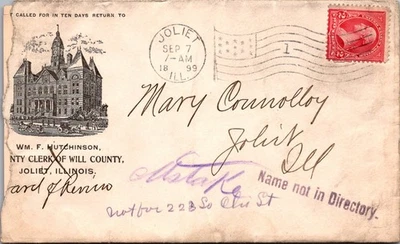 F CALLED FOR IN TEN DAYS RETURN TO
JOLIET
SEP 7
7-AM
1899
ILL.
1
Mary Connolloy
Joliet
Ill
WM. F. HUTCHINSON,
NTY CLERK OF WILL COUNTY,
JOLIET, ILLINOIS.
Board of Review
Mistake
Name not in Directory.
not for 223 So
St